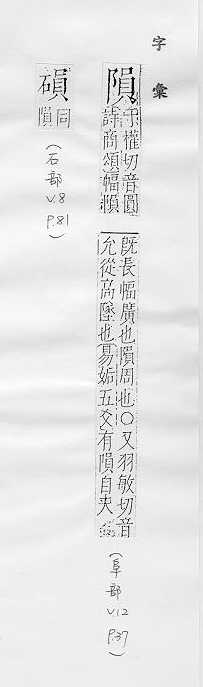 字彙
隕
于權切音圓
詩商頌幅隕
既長幅廣也隕周也○又羽敏切音
允從高墜也易姤五爻有隕自天
(阜部 V.12 P.37)
磒
同
隕
(石部 V.8 P.81)